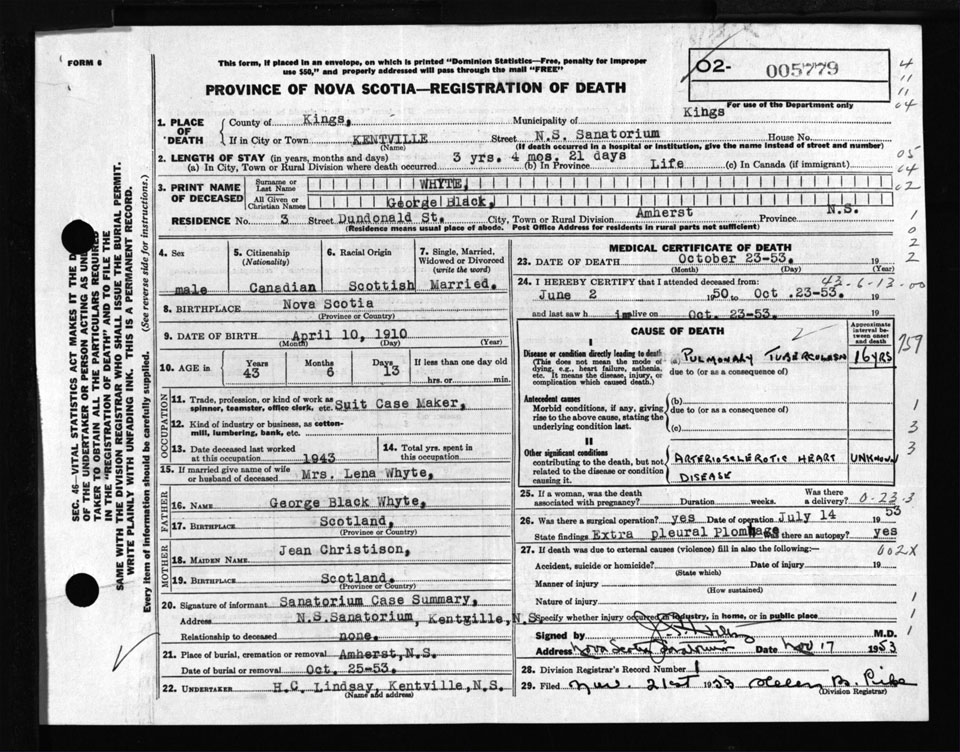 FORM 6
This form, if placed in an envelope, on which is printed "Dominion Statistics—Free, penalty for improper
use $50," and properly addressed will pass through the mail "FREE"
02- 005779
PROVINCE OF NOVA SCOTIA—REGISTRATION OF DEATH
For use of the Department only
1. PLACE OF DEATH
County of Kings, Municipality of Kings
If in City or Town KENTVILLE Street N.S. Sanatorium House No.
(Name) (If death occurred in a hospital or institution, give the name instead of street and number)
2. LENGTH OF STAY (in years, months and days)
(a) In City, Town or Rural Division where death occurred 3 yrs. 4 mos. 21 days (b) In Province Life (c) In Canada (if immigrant)
3. PRINT NAME OF DECEASED
Surname or Last Name WHYTE,
All Given or Christian Names George Black,
RESIDENCE No. 3 Street Dundonald St. City, Town or Rural Division Amherst Province N.S.
(Residence means usual place of abode. Post Office Address for residents in rural parts not sufficient)
4. Sex male
5. Citizenship (Nationality) Canadian
6. Racial Origin Scottish
7. Single, Married, Widowed or Divorced (write the word) Married.
8. BIRTHPLACE Nova Scotia
(Province or Country)
9. DATE OF BIRTH April 10, 1910
(Month) (Day) (Year)
10. AGE in Years 43 Months 6 Days 13 If less than one day old
hrs. or min.
OCCUPATION
11. Trade, profession, or kind of work as spinner, teamster, office clerk, etc. Suit Case Maker,
12. Kind of industry or business, as cotton-mill, lumbering, bank, etc.
13. Date deceased last worked at this occupation 1943
14. Total yrs. spent in this occupation
15. If married give name of wife or husband of deceased Mrs. Lena Whyte,
FATHER
16. Name George Black Whyte,
17. Birthplace Scotland,
(Province or Country)
MOTHER
18. MAIDEN NAME Jean Christison,
19. BIRTHPLACE Scotland.
(Province or Country)
20. Signature of informant Sanatorium Case Summary,
Address N.S.Sanatorium, Kentgille,N.S
Relationship to deceased none.
21. Place of burial, cremation or removal Amherst,N.S.
Date of burial or removal Oct. 25-53.
22. UNDERTAKER H.C. Lindsay, Kentville,N.S.
(Name and address)
MEDICAL CERTIFICATE OF DEATH
23. DATE OF DEATH October 23-53. 19
(Month) (Day) (Year)
24. I HEREBY CERTIFY that I attended deceased from: 43-6-13-00
June 2 1950, to Oct .23-53. 19
and last saw h im live on Oct. 23-53. 19
CAUSE OF DEATH
Approximate interval between onset and death
I
Disease or condition directly leading to death (a) PULMONARY TUBERCULOSIS 16 YRS
(This does not mean the mode of dying, e.g., heart failure, asthenia, etc. It means the disease, injury, or complication which caused death.)
due to (or as a consequence of)
Antecedent causes
Morbid conditions, if any, giving rise to the above cause, stating the underlying condition last.
(b)
due to (or as a consequence of)
(c)
II
Other significant conditions contributing to the death, but not related to the disease or condition causing it.
ARTERIOSCLEROTIC HEART DISEASE UNKNOWN
25. If a woman, was the death associated with pregnancy? Duration weeks. Was there a delivery? 0-23.3
26. Was there a surgical operation? yes Date of operation July 14 1953
State findings Extra pleural Plombage Was there an autopsy? yes
27. If death was due to external causes (violence) fill in also the following: 002X
Accident, suicide or homicide? Date of injury 19
(State which)
Manner of injury
(How sustained)
Nature of injury
Specify whether injury occurred in industry, in home, or in public place
Signed by M.D.
Address Nova Scotia Sanatorium Date Nov 17 1953
28. Division Registrar's Record Number 1
29. Filed Nov. 21st 1953 Helen B. Pike
(Division Registrar)
4
11
11
04
05
04
02
1
0
2
2
759
1
3
3
1
1
1
SEC. 46—VITAL STATISTICS ACT MAKES IT THE D
OF THE UNDERTAKER OR PERSON ACTING AS UND
TAKER TO OBTAIN ALL THE PARTICULARS REQUIRED
IN THE "REGISTRATION OF DEATH" AND TO FILE THE
SAME WITH THE DIVISION REGISTRAR WHO SHALL ISSUE THE BURIAL PERMIT.
WRITE PLAINLY WITH UNFADING INK. THIS IS A PERMANENT RECORD.
Every item of information should be carefully supplied. (See reverse side for instructions.)